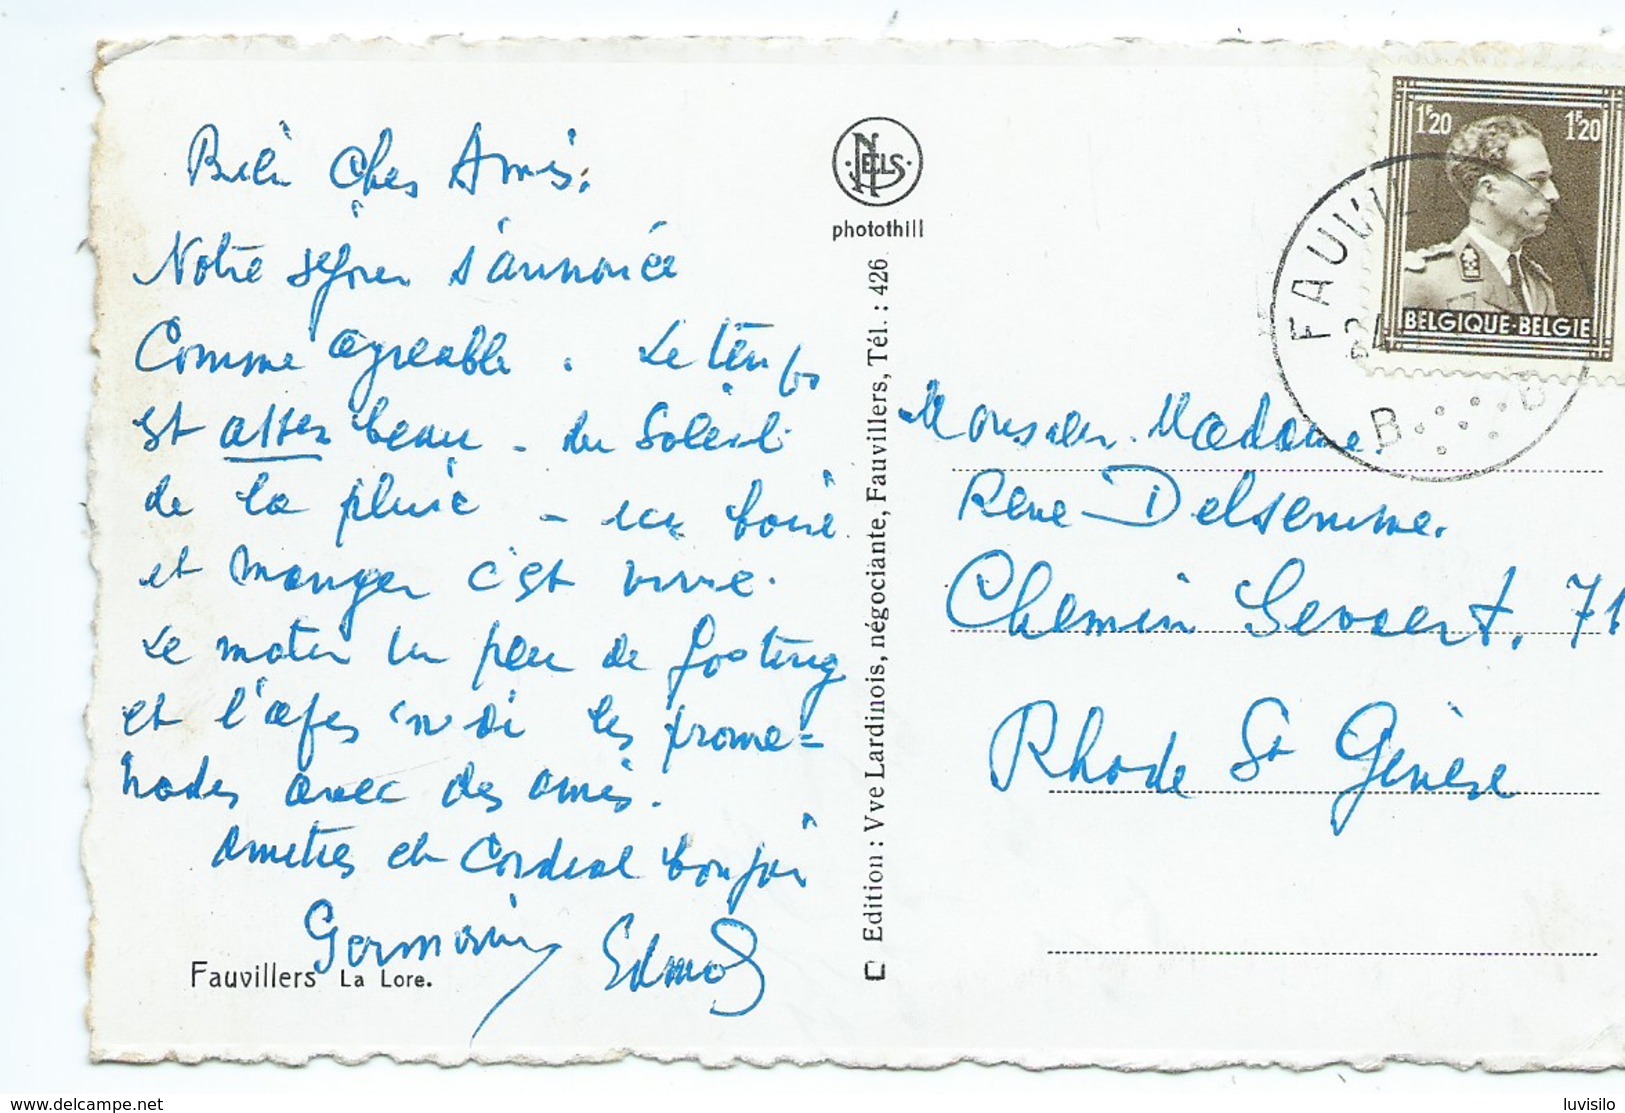 Bien Chers Amis.
Notre séjour s'annonce
Comme agreable. Le temps
est assez beau - du Soleil
de la pluie - ici boire
et manger c'est vivre.
Le matin un peu de footing
et l'après midi les prome=
nades avec des amis.
Amitiés et Cordial bonjour
Germaine Edmond
Fauvillers La Lore.
NELS
photothill
Edition : Vve Lardinois, négociante, Fauvillers, Tél. : 426
1F20 1F20
BELGIQUE-BELGIE
FAUVI
B B
Monsieur. Madame.
René Delsemme.
Chemin Gevaert. 71
Rhode St Genèse
delcampe.net
luvisilo